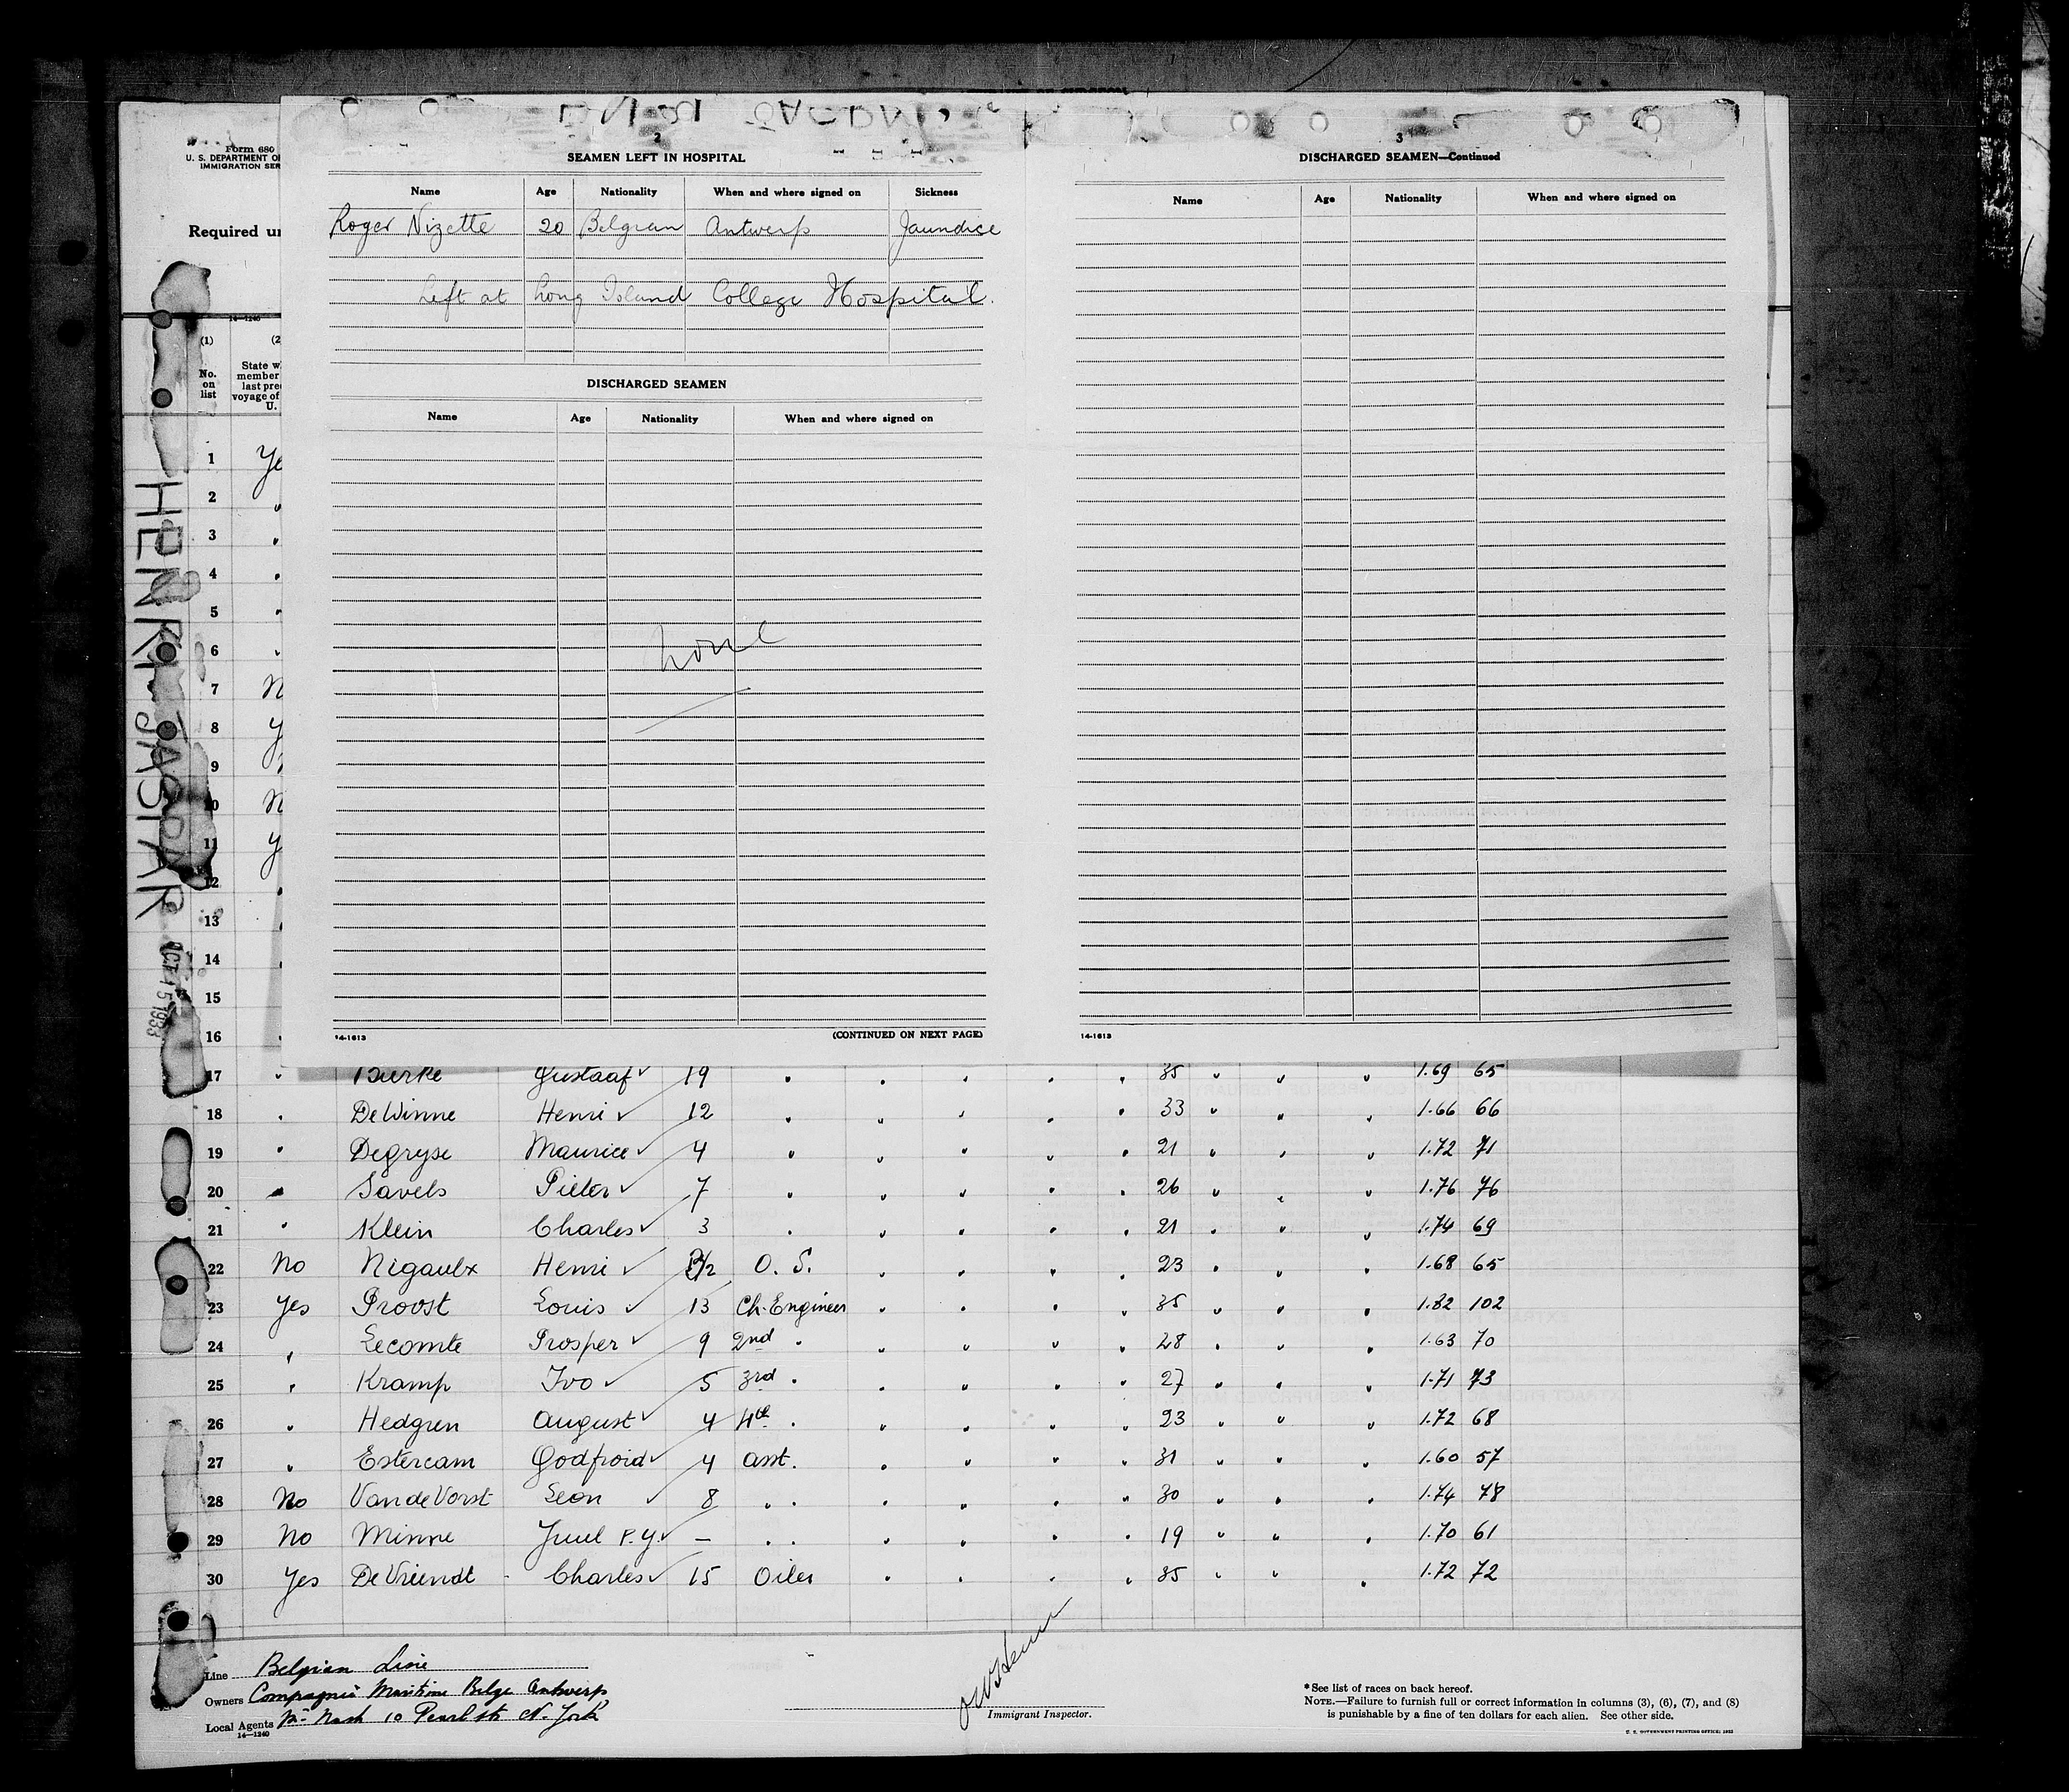 Form 680
U. S. DEPARTMENT O
IMMIGRATION SER
Required u
14—1240
(1) (2
No. on list
State w
member
last pre
voyage of
U.
1 Ye
2 "
3 "
4 "
5 "
6 "
7 N
8 Y
9
10 N
11 Y
12 "
13 "
14 "
15
16 "
HENRI JASPAR
OCT 15 1933
2
SEAMEN LEFT IN HOSPITAL
Name Age Nationality When and where signed on Sickness
Roger Nizette 20 Belgian Antwerp Jaundice
Left at Long Island College Hospital.
DISCHARGED SEAMEN
Name Age Nationality When and where signed on
none
14-1613 (CONTINUED ON NEXT PAGE)
3
DISCHARGED SEAMEN—Continued
Name Age Nationality When and where signed on
14-1613
17 " Buerke Gustaaf 19 " " " " " 35 " " " 1.69 65
18 " DeWinne Henri 12 " " " " " 33 " " " 1.66 66
19 " Degryse Maurice 4 " " " " " 21 " " " 1.72 71
20 " Savels Pieter 7 " " " " " 26 " " " 1.76 76
21 " Klein Charles 3 " " " " " 21 " " " 1.74 69
22 No Nigaulx Henri O. S. " " " " 23 " " " 1.68 65
23 Yes Proost Louis 13 Ch. Engineer " " " " 35 " " " 1.82 102
24 " Lecomte Prosper 9 2nd " " " " " 28 " " " 1.63 70
25 " Kramp Ivo 5 3rd " " " " " 27 " " " 1.71 73
26 " Hedgren August 4 4th " " " " " 23 " " " 1.72 68
27 " Estercam Godfroid 4 asst. " " " " 31 " " " 1.60 57
28 No Van de Vorst Leon 8 " " " " " " 30 " " " 1.74 78
29 No Minne Juul P.G. — " " " " " " 19 " " " 1.70 61
30 Yes De Vriendt Charles 15 Oiler " " " " 35 " " " 1.72 72
Line Belgian Line
Owners Compagnie Maritime Belge Antwerp
Local Agents Mc Nash 10 Pearl str N. York
14—1240
Immigrant Inspector.
*See list of races on back hereof.
NOTE.—Failure to furnish full or correct information in columns (3), (6), (7), and (8)
is punishable by a fine of ten dollars for each alien. See other side.
U. S. GOVERNMENT PRINTING OFFICE: 1932